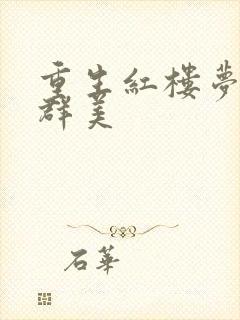 重生紅樓夢
群美
石華